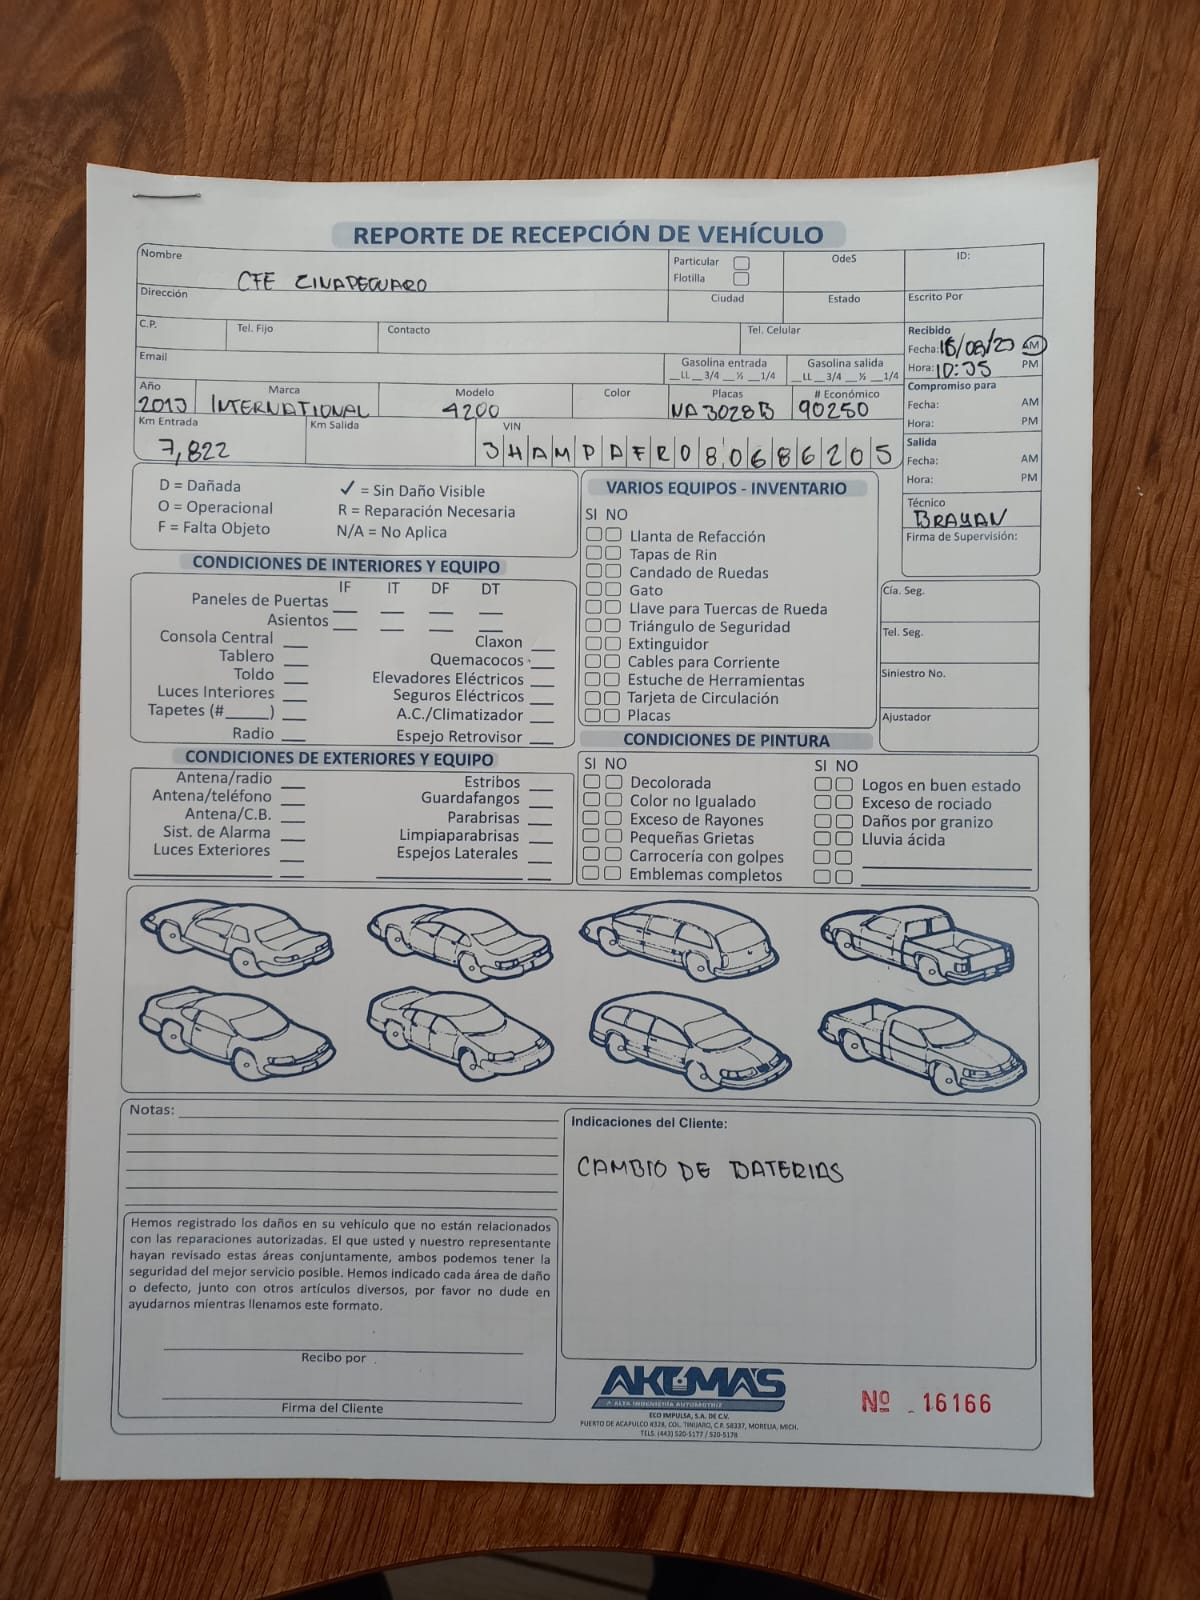 REPORTE DE RECEPCIÓN DE VEHÍCULO
Nombre
CFE ZINAPECUARO
Particular
Flotilla
OdeS
ID:
Dirección
Ciudad
Estado
Escrito Por
C.P.
Tel. Fijo
Contacto
Tel. Celular
Recibido
Fecha: AM
Hora: PM
Email
Gasolina entrada
__LL __3/4 __½ __1/4
Gasolina salida
__LL __3/4 __½ __1/4
Año
Marca
INTERNATIONAL
Modelo
4200
Color
Placas
NA3028B
# Económico
90250
Compromiso para
Fecha: AM
Hora: PM
Km Entrada
7,822
Km Salida
VIN
3HAMPAFR08L686205
Salida
Fecha: AM
Hora: PM
Técnico
BRAYAN
Firma de Supervisión:
D = Dañada
O = Operacional
F = Falta Objeto
✓ = Sin Daño Visible
R = Reparación Necesaria
N/A = No Aplica
CONDICIONES DE INTERIORES Y EQUIPO
IF IT DF DT
Paneles de Puertas
Asientos
Consola Central
Tablero
Toldo
Luces Interiores
Tapetes (#_____)
Radio
Claxon
Quemacocos
Elevadores Eléctricos
Seguros Eléctricos
A.C./Climatizador
Espejo Retrovisor
VARIOS EQUIPOS - INVENTARIO
SI NO
Llanta de Refacción
Tapas de Rin
Candado de Ruedas
Gato
Llave para Tuercas de Rueda
Triángulo de Seguridad
Extinguidor
Cables para Corriente
Estuche de Herramientas
Tarjeta de Circulación
Placas
Cía. Seg.
Tel. Seg.
Siniestro No.
Ajustador
CONDICIONES DE EXTERIORES Y EQUIPO
Antena/radio
Antena/teléfono
Antena/C.B.
Sist. de Alarma
Luces Exteriores
Estribos
Guardafangos
Parabrisas
Limpiaparabrisas
Espejos Laterales
CONDICIONES DE PINTURA
SI NO
Decolorada
Color no Igualado
Exceso de Rayones
Pequeñas Grietas
Carrocería con golpes
Emblemas completos
SI NO
Logos en buen estado
Exceso de rociado
Daños por granizo
Lluvia ácida
Notas:
Indicaciones del Cliente:
CAMBIO DE BATERIAS
Hemos registrado los daños en su vehículo que no están relacionados
con las reparaciones autorizadas. El que usted y nuestro representante
hayan revisado estas áreas conjuntamente, ambos podemos tener la
seguridad del mejor servicio posible. Hemos indicado cada área de daño
o defecto, junto con otros artículos diversos, por favor no dude en
ayudarnos mientras llenamos este formato.
Recibo por
Firma del Cliente
AKUMAS
ALTA INGENIERÍA AUTOMOTRIZ
ECO IMPULSA, S.A. DE C.V.
PUERTO DE ACAPULCO #328, COL. TINIJARO, C.P. 58337, MORELIA, MICH.
TELS. (443) 520-5177 / 520-5178
Nº 16166